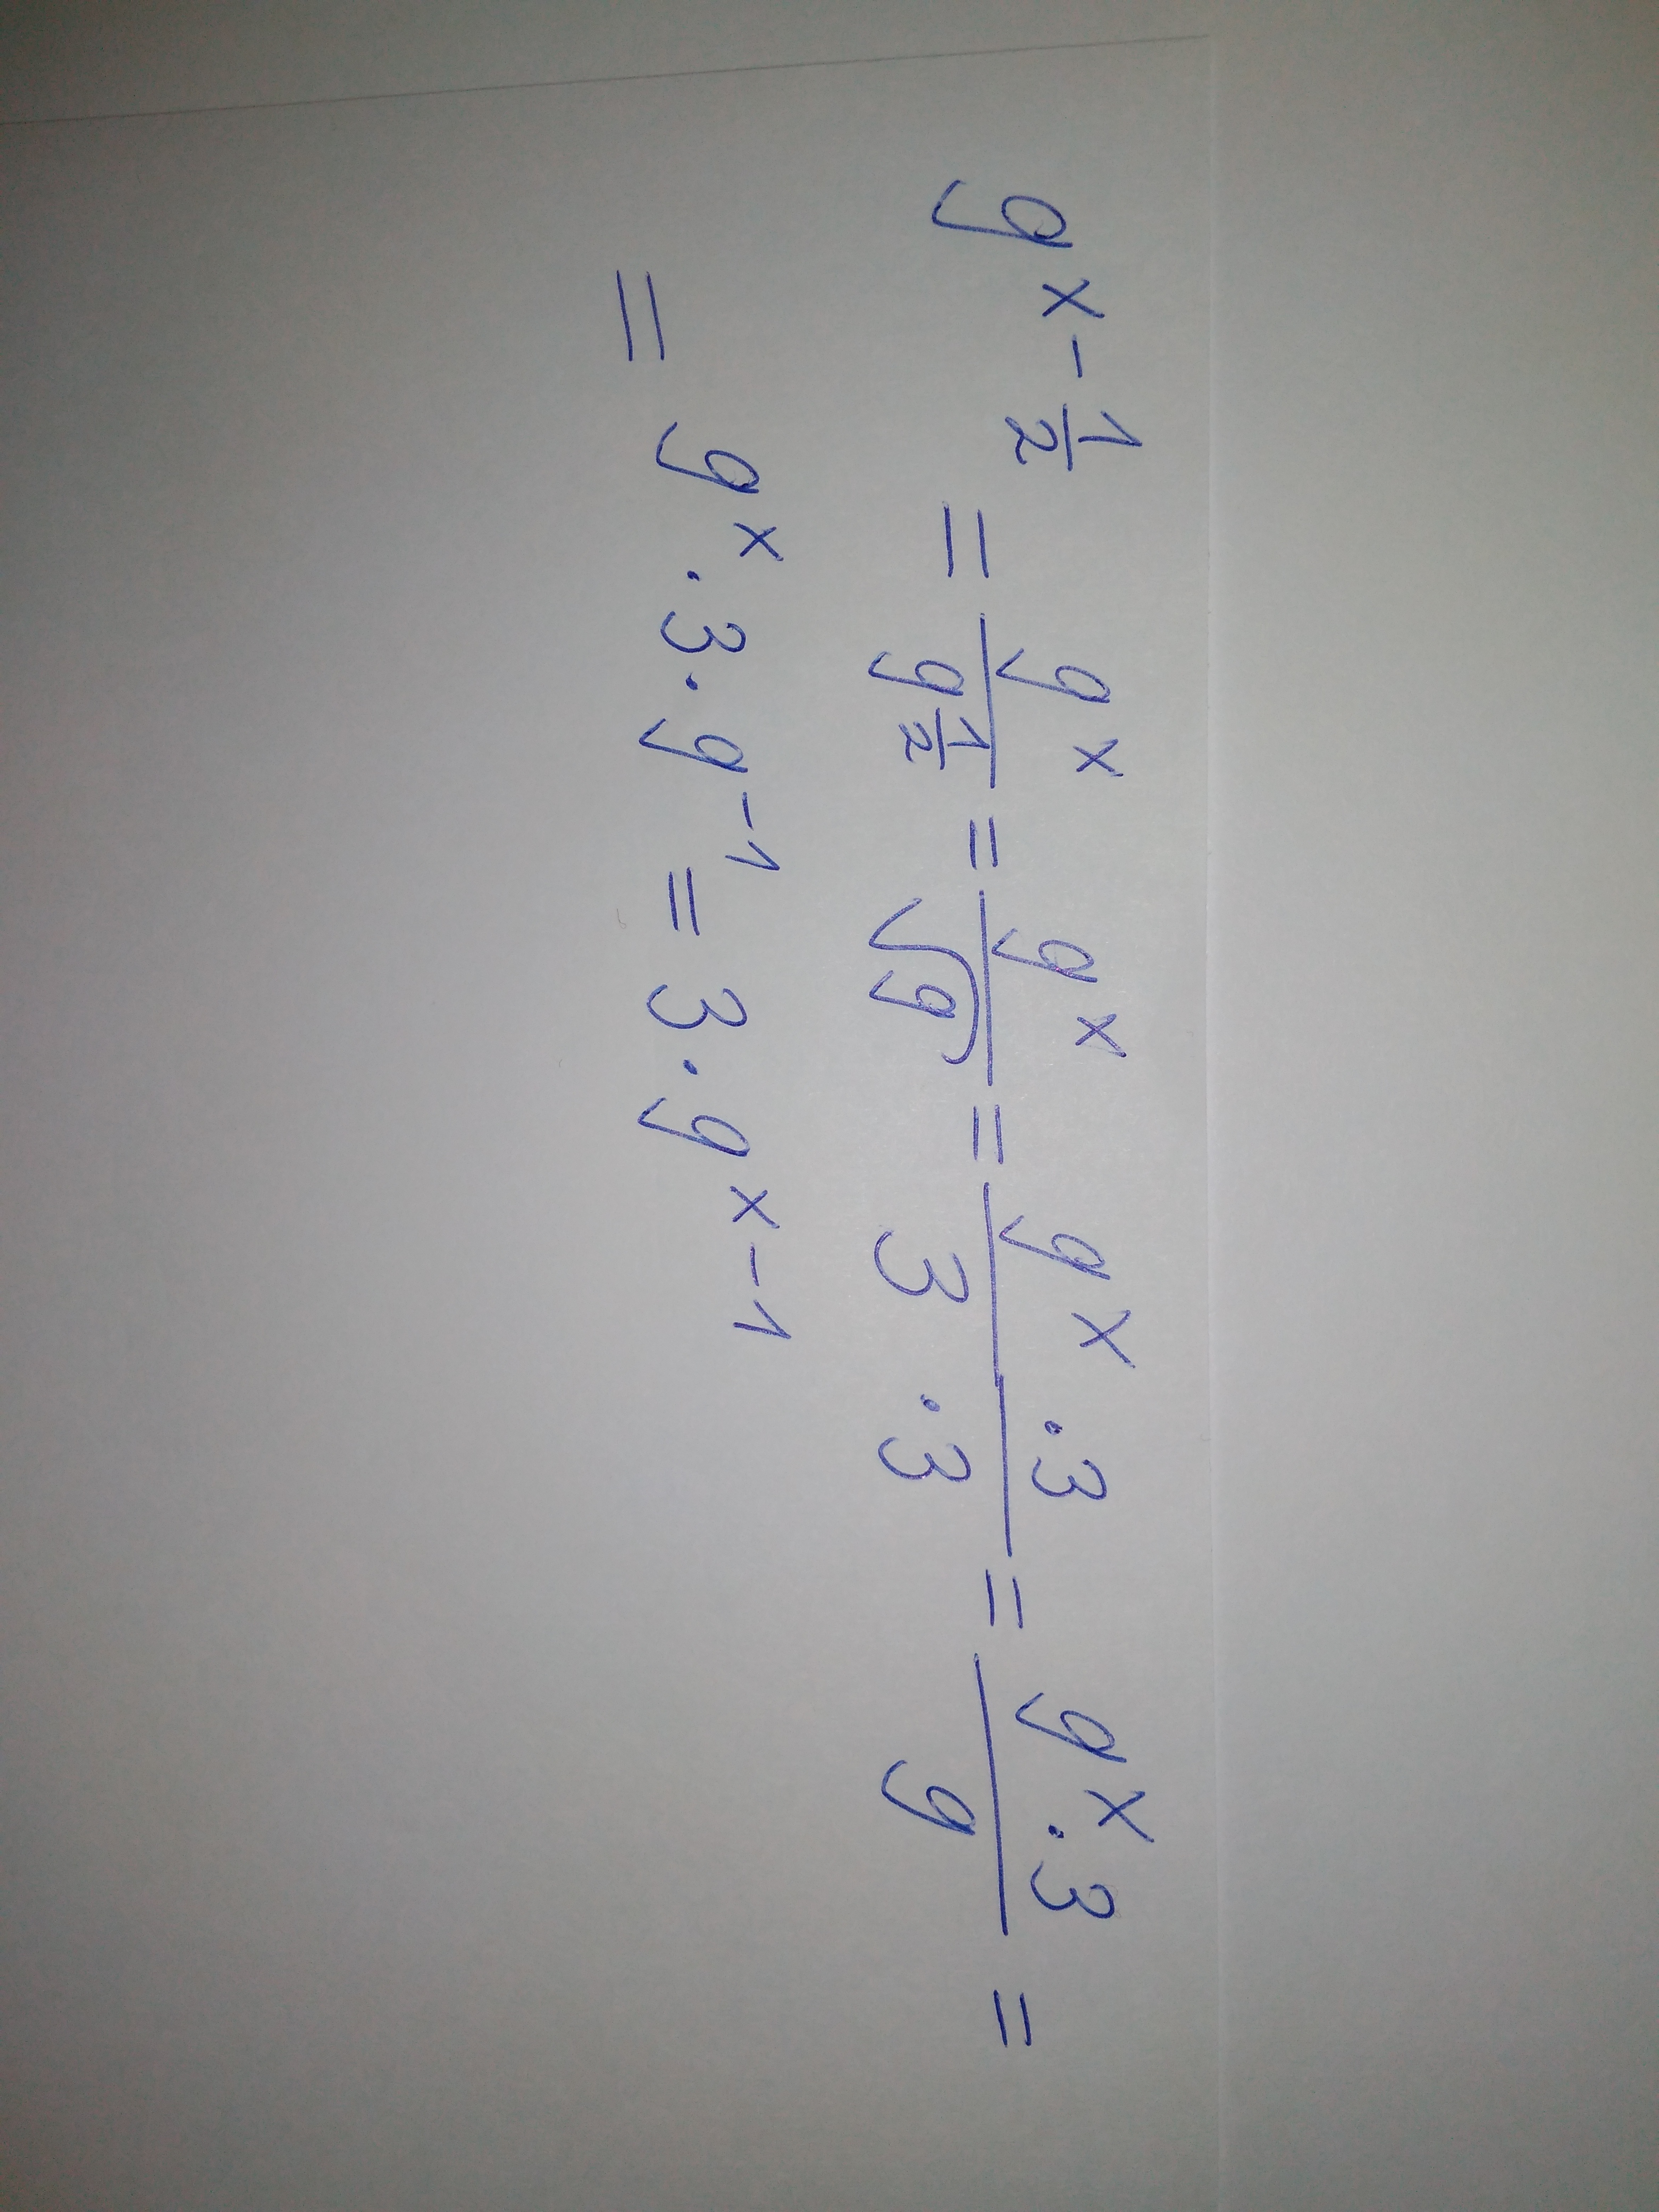 9^{x-\frac{1}{2}} = \frac{9^x}{9^{\frac{1}{2}}} = \frac{9^x}{\sqrt{9}} = \frac{9^x \cdot 3}{3 \cdot 3} = \frac{9^x \cdot 3}{9} =
= 9^x \cdot 3 \cdot 9^{-1} = 3 \cdot 9^{x-1}